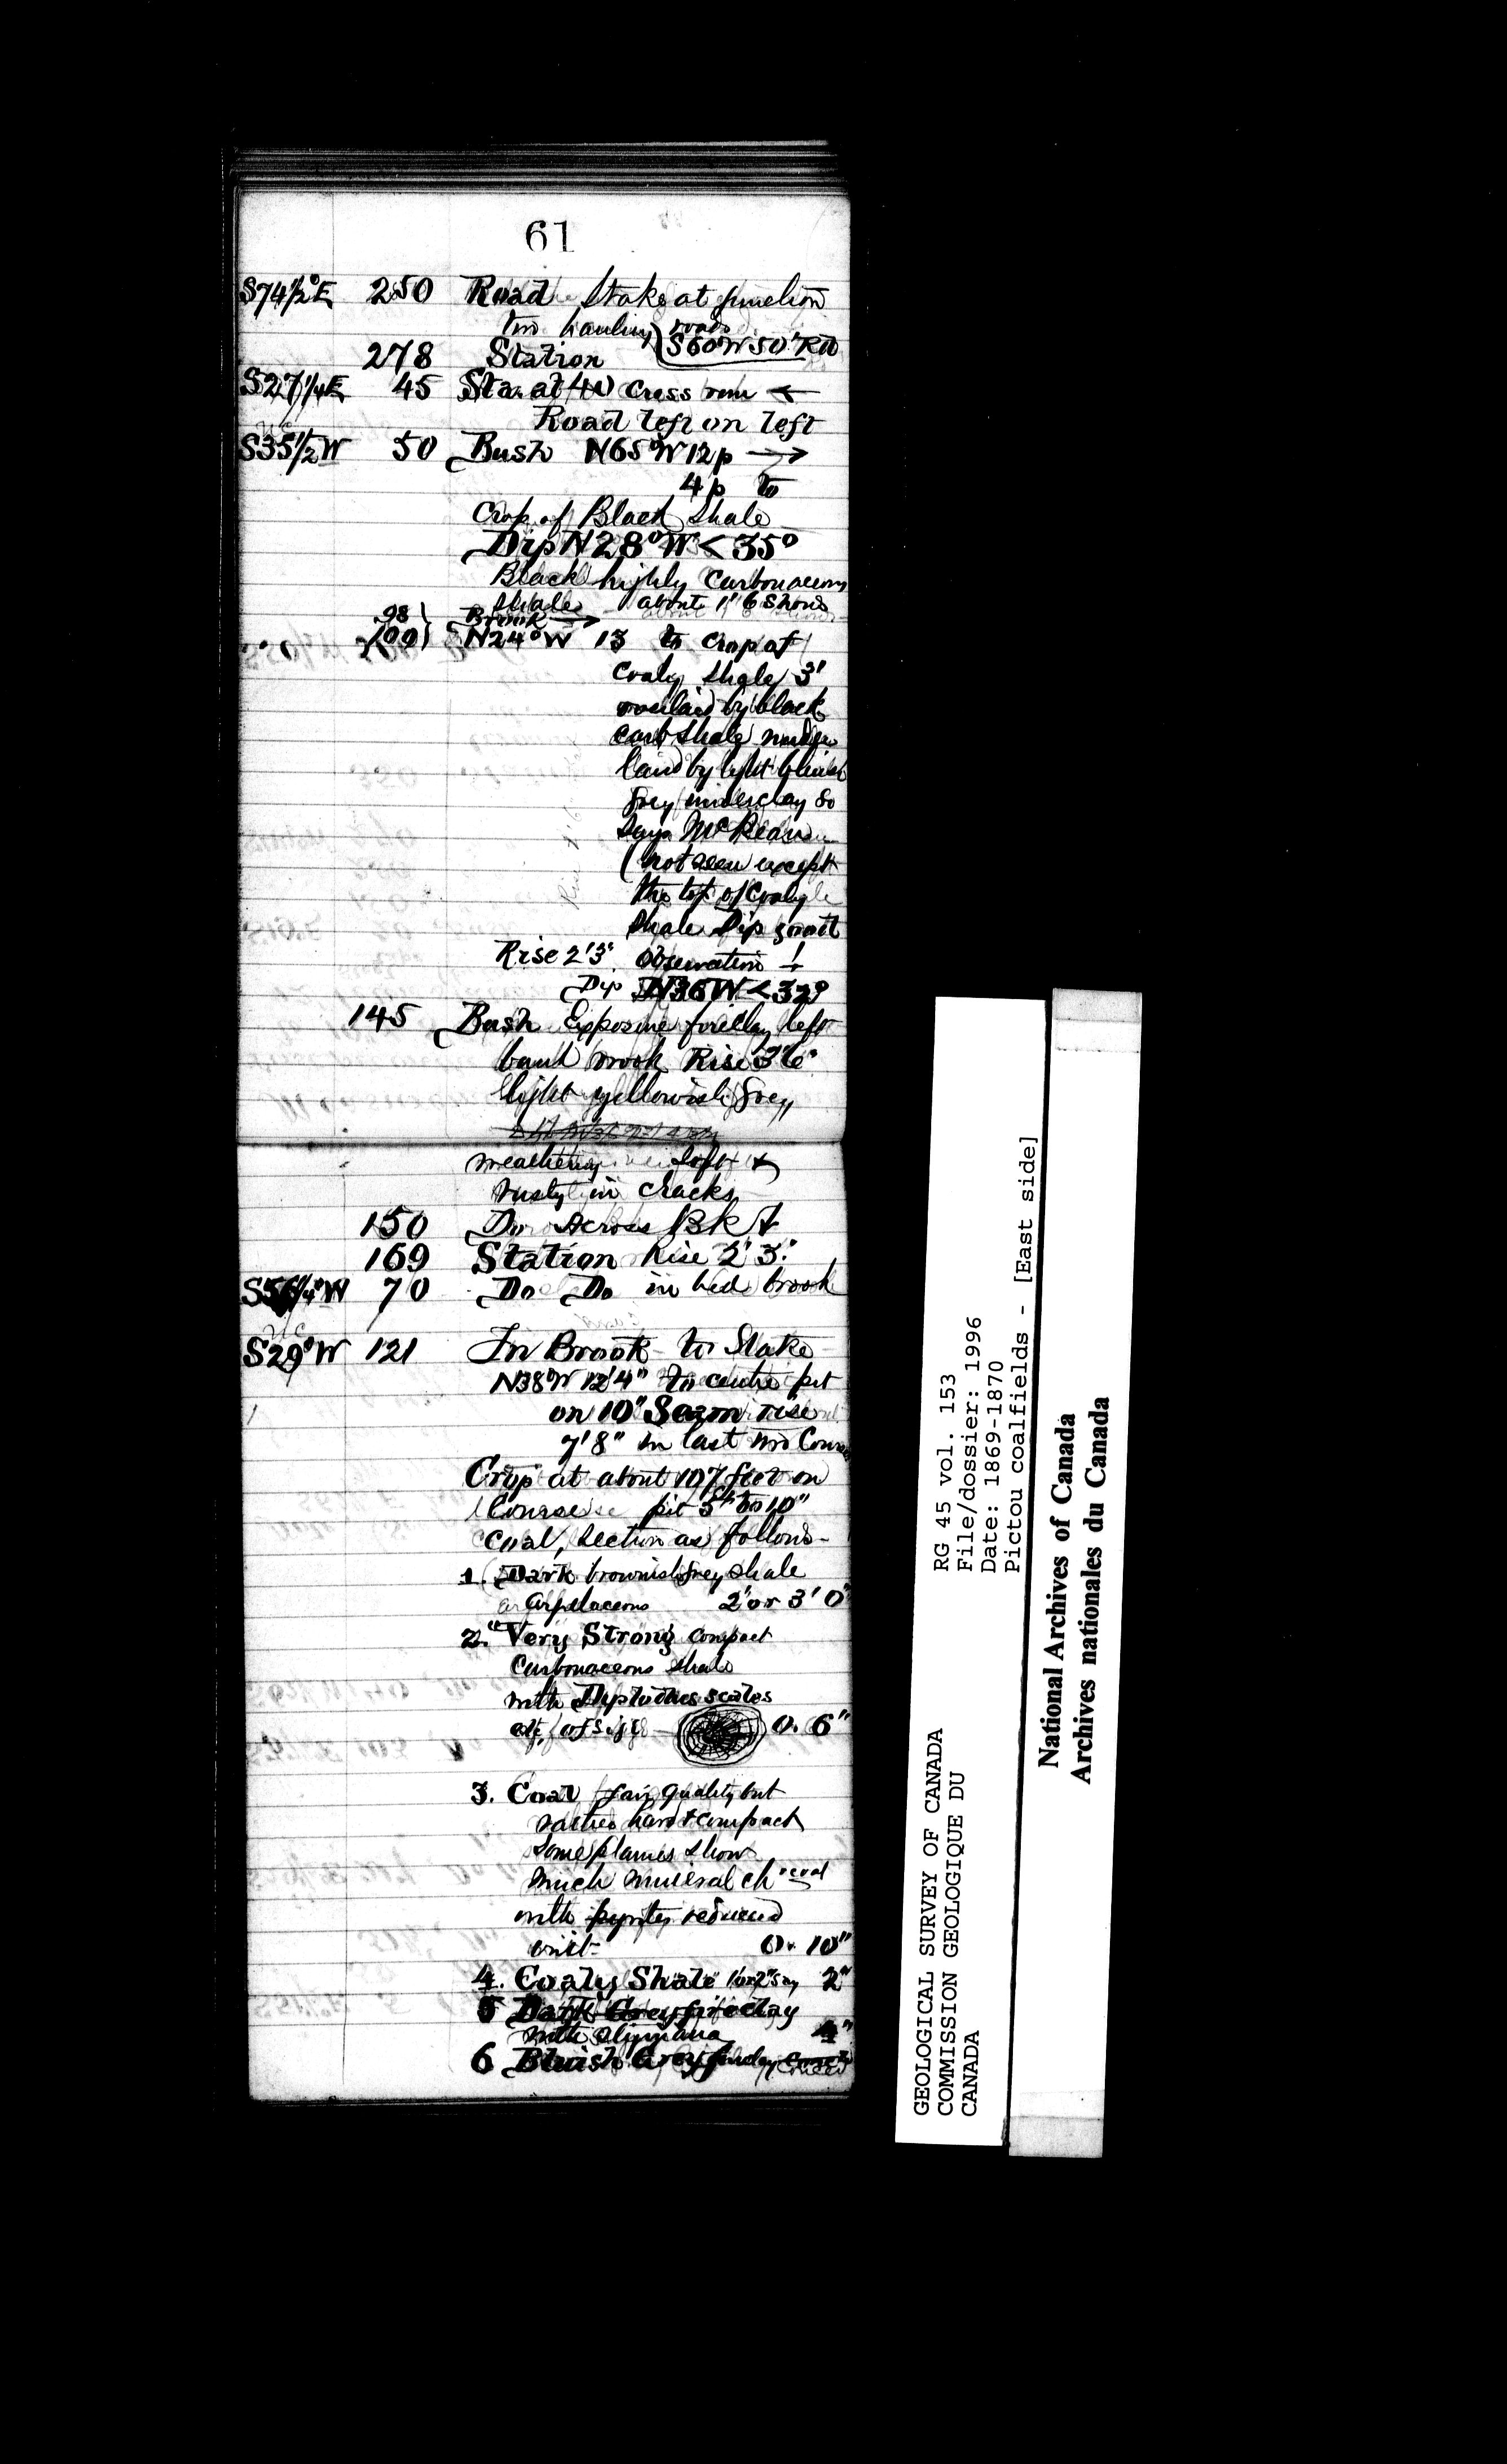 61
S74½°E 250 Road Stake at junction
two hauling roads
278 Station S60°W 50' Rd
S27¼E 45 Sta. at 40 Cross run ←
Road left on left
S35½W 50 Bush N65°W 12p →
4p to
Crop of Black Shale
Dip N28°W < 35°
Black highly Carbonaceous
Shale about 1' 6 shows
98 Brook →
100 N24°W 13 to crop of
Coaly Shale 3'
overlaid by black
carb Shale under
laid by light bluish
grey underclay so
says McBean
(not seen except
the top of Coaly
Shale Dip good
Rise 2'3" observation !
Dip N36W < 32°
145 Bush Exposure fireclay left
bank brook Rise 3'6"
light yellowish Grey
weathering soft &
rusty in cracks
150 Do Across Bk
169 Station Rise 2' 3"
S56¼°W 70 Do Do in bed brook
S29°W 121 In Brook to Stake
N38°W 12'4" to centre pit
on 10" Seam rise
7'8" in last two Courses
Crop at about 107 feet on
Course pit 5ft to 10"
Coal, Section as follows-
1. Dark brownish Grey shale
Argillaceous 2' or 3' 0"
2. "Very Strong compact
Carbonaceous Shale
with scales
of size 0. 6"
3. Coal fair quality but
rather hard & compact
Some planes show
much mineral ch'coal
with pyrites
0. 10"
4. Coaly Shale 1 or 2" say 2"
5 Dark Grey fireclay
with stigmaria 4"
6 Bluish Grey fireclay
GEOLOGICAL SURVEY OF CANADA
COMMISSION GEOLOGIQUE DU
CANADA
RG 45 vol. 153
File/dossier: 1996
Date: 1869-1870
Pictou coalfields - [East side]
National Archives of Canada
Archives nationales du Canada